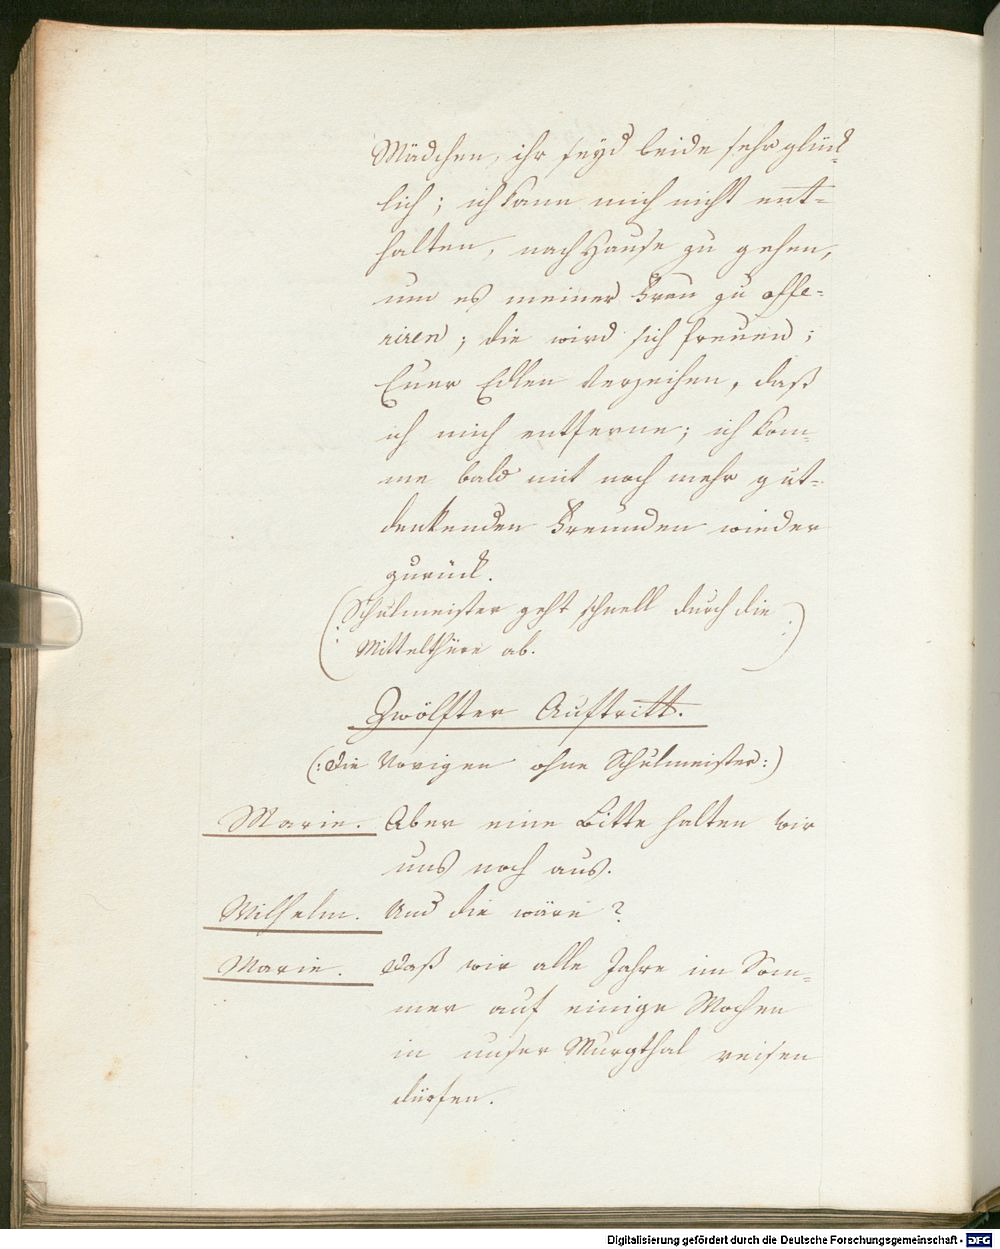 Mädchen, ihr seyd beide sehr glück-
lich; ich kann mich nicht ent=
halten, nach Hause zu gehen,
um es meiner Frau zu offe-
riren; die wird sich freuen;
Euer Edlen verzeihen, daß
ich mich entferne; ich kom-
me bald mit noch mehr gut=
denkenden Freunden wieder
zurück.
(: Schulmeister geht schnell durch die
Mittelthüre ab. :)
Zwölfter Auftritt.
(: Die Vorigen ohne Schulmeister :)
Marie. Aber eine Bitte halten wir
uns noch aus.
Wilhelm. Und die wäre?
Marie. Daß wir alle Jahre im Som=
mer auf einige Wochen
in unser Murgthal reisen
dürfen.
Digitalisierung gefördert durch die Deutsche Forschungsgemeinschaft - DFG